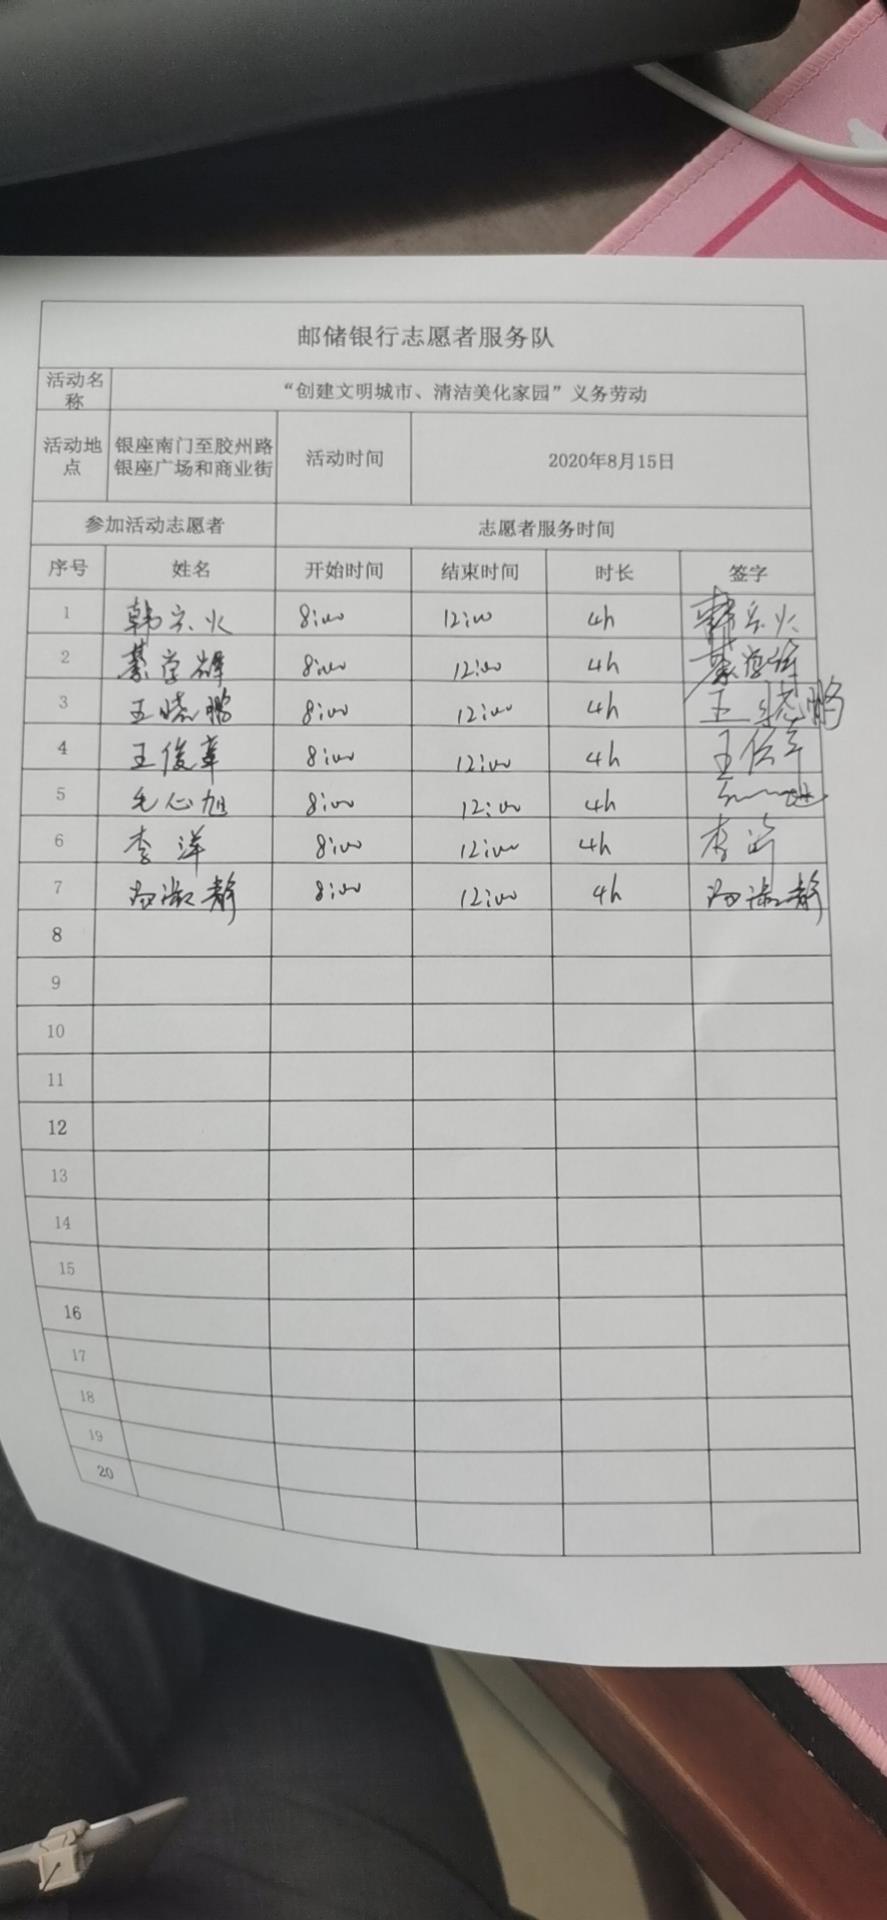 邮储银行志愿者服务队
活动名称 “创建文明城市、清洁美化家园”义务劳动
活动地点 银座南门至胶州路银座广场和商业街 活动时间 2020年8月15日
参加活动志愿者 志愿者服务时间
序号 姓名 开始时间 结束时间 时长 签字
1 韩宗火 8:00 12:00 4h 韩宗火
2 綦学辉 8:00 12:00 4h 綦学辉
3 王晓鹏 8:00 12:00 4h 王晓鹏
4 王俊章 8:00 12:00 4h 王俊章
5 毛心旭 8:00 12:00 4h
6 李洋 8:00 12:00 4h 李洋
7 淑静 8:00 12:00 4h 淑静
8
9
10
11
12
13
14
15
16
17
18
19
20